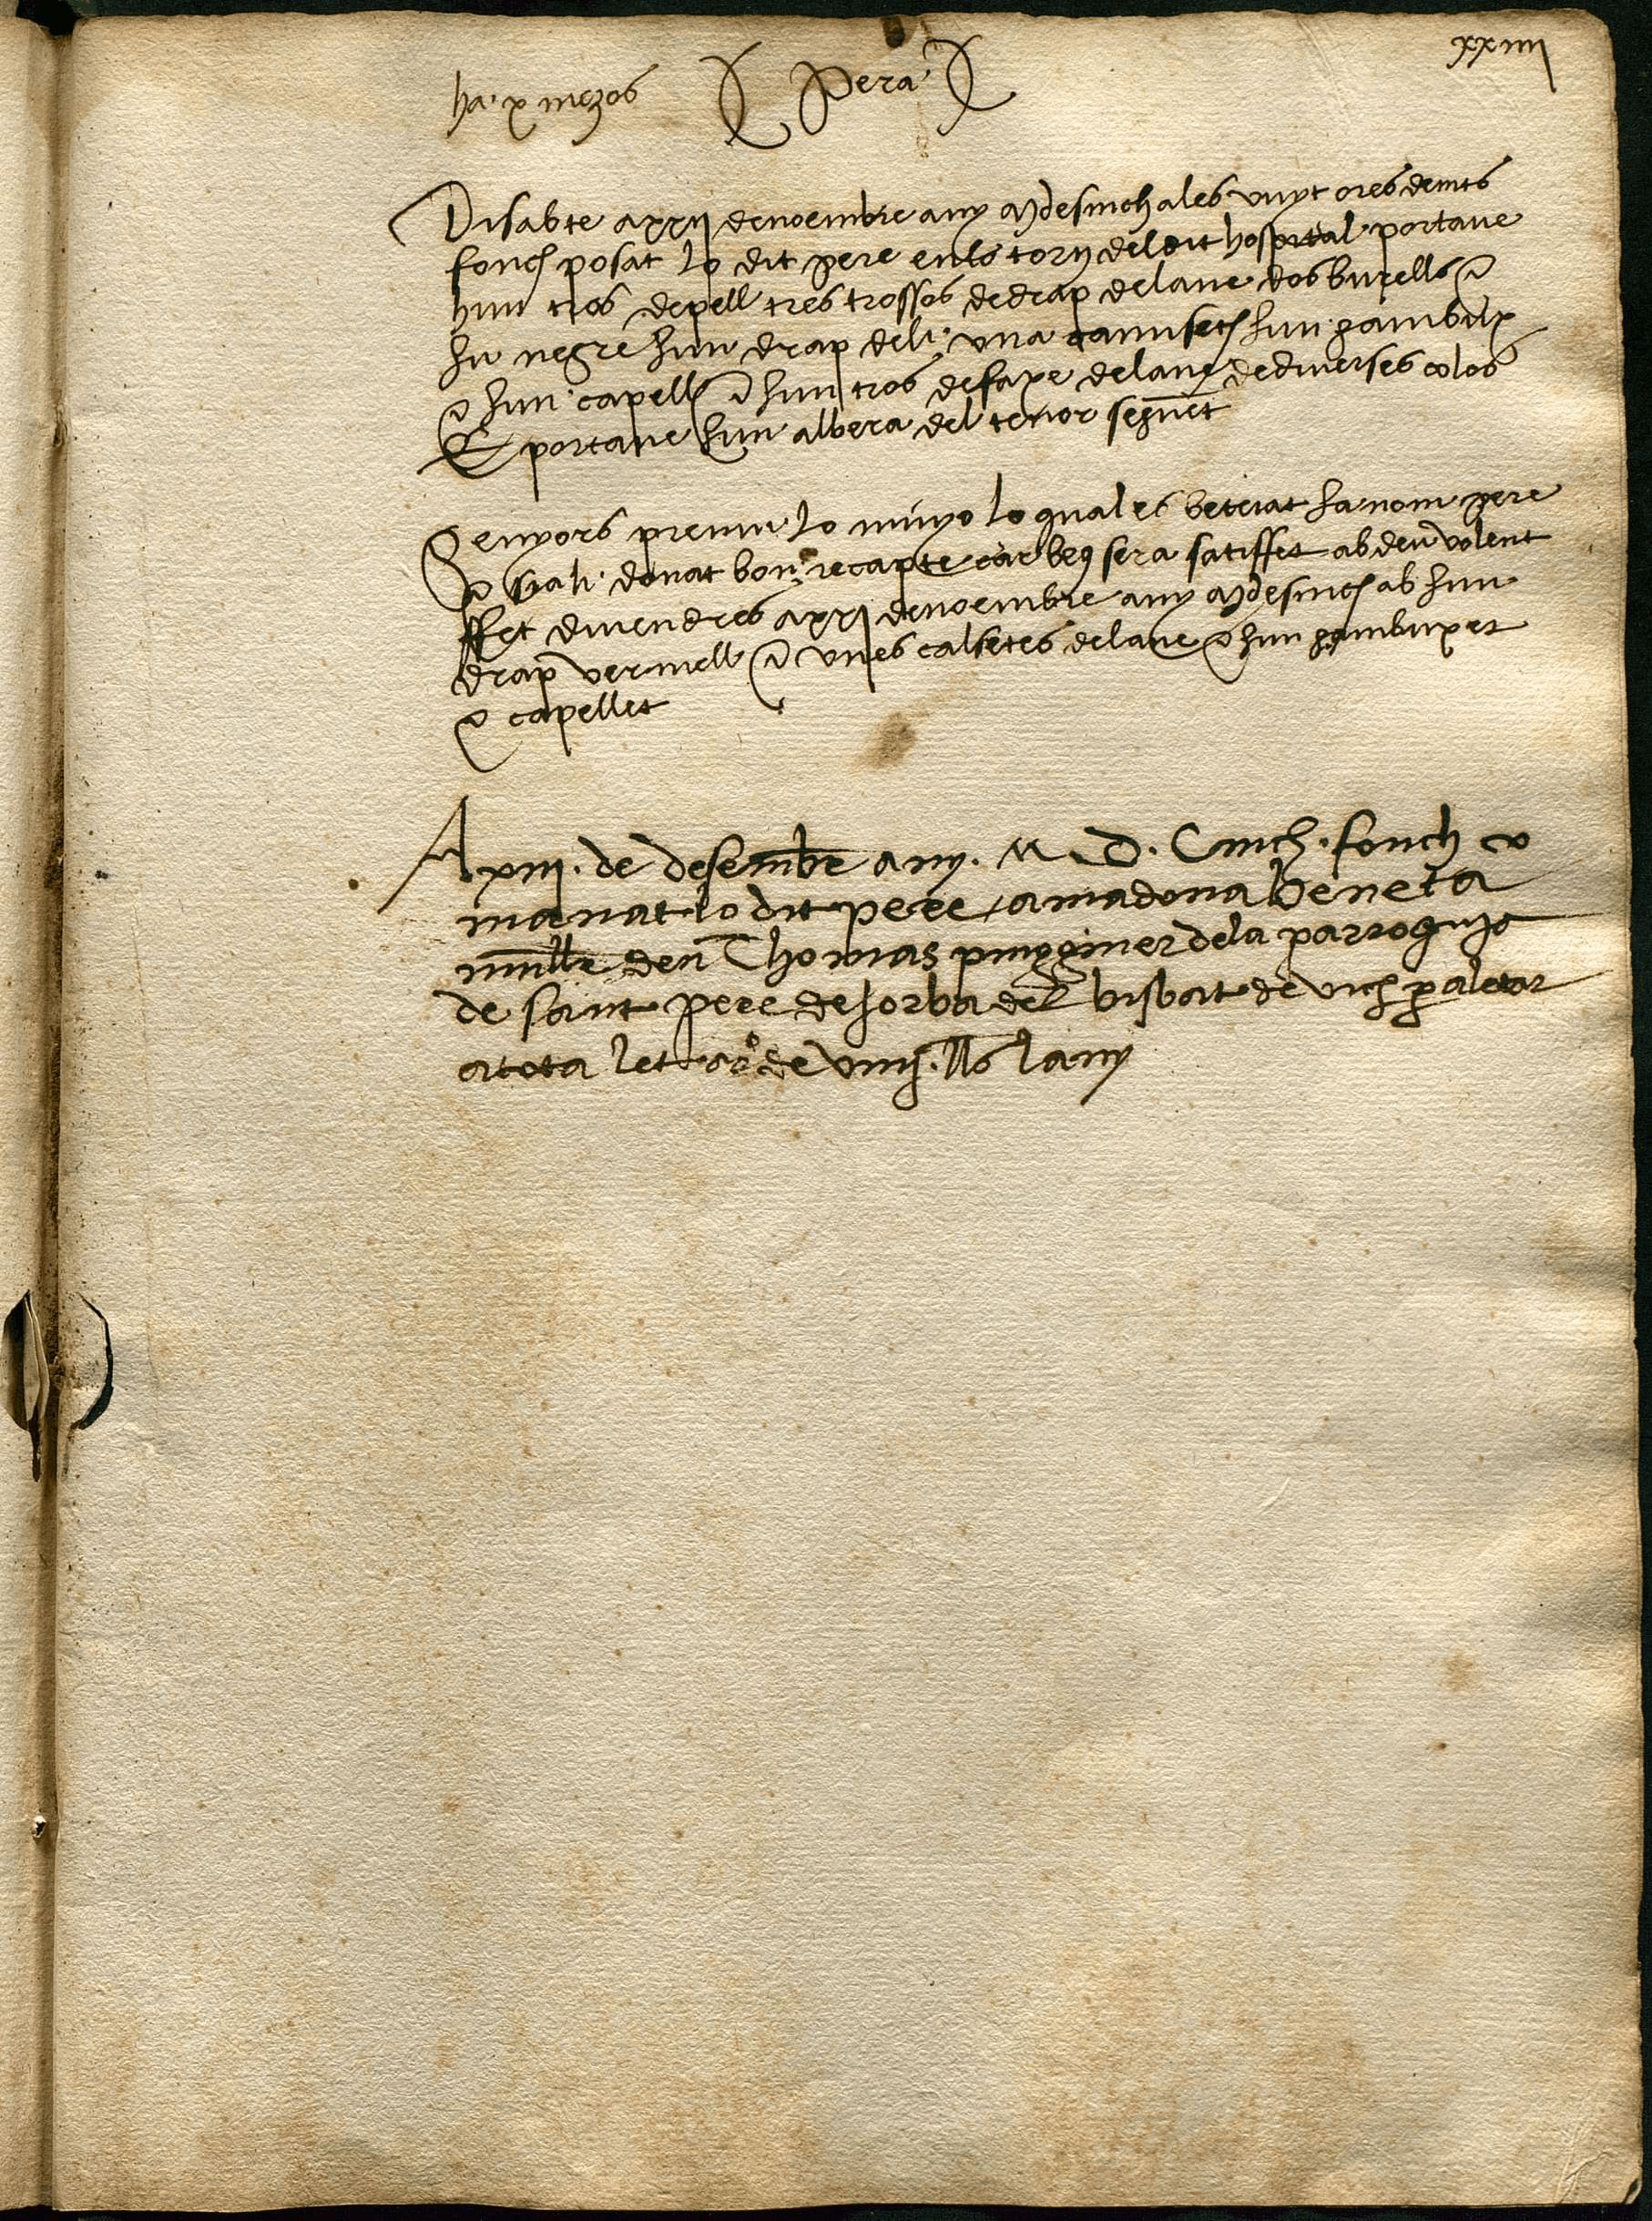 xxiiii
ha x mezos Pera
Disabte a xxij de noembre any mdesinch a les vuyt ores de nits
fonch posat lo dit pere en lo torn del dit hospital portave
hun tros de pell tres trossos de drap de lane dos burells e
hu negre hun drap de li una camiseta hun gambux
e hun capell e hun tros de faxe de lane de diverses colos
E portave hun albera del tenor seguet
Senyors preniu lo minyo lo qual es betejat ha nom pere
e sia li donat bon recapte car be sera satisffet ab deu volent
ffet divendres a xxj de noembre any mdesinch ab hun
drap vermell e unes calsetes de lane e hun gambuxet
e capellet
A xiii de desembre any M D Cinch fonch
manat lo dit pere a madona beneta
muller den Thomas puigginer de la parroquja
de sant pere desorba del bisbat de vich p aletar
a tota let ço de viiij lls lany